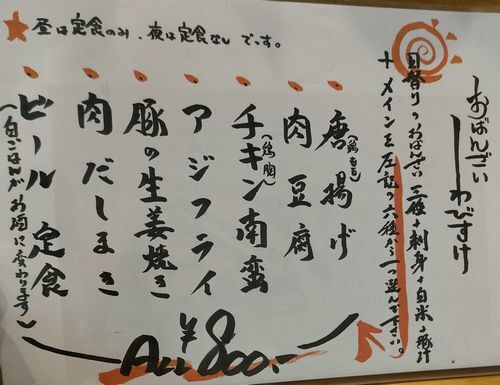 ★昼は定食のみ、夜は定食なしです。
おばんざい
わびすけ
日替りのおばんざい三種+刺身+白米+豚汁
+メインを左記の六種から一つ選んで下さい。
唐揚げ
(鶏もも)
肉豆腐
チキン南蛮
(鶏胸)
アジフライ
豚の生姜焼き
肉だしまき
ビール定食
(白ごはんがお酒に変わります)
ALL ¥800.-